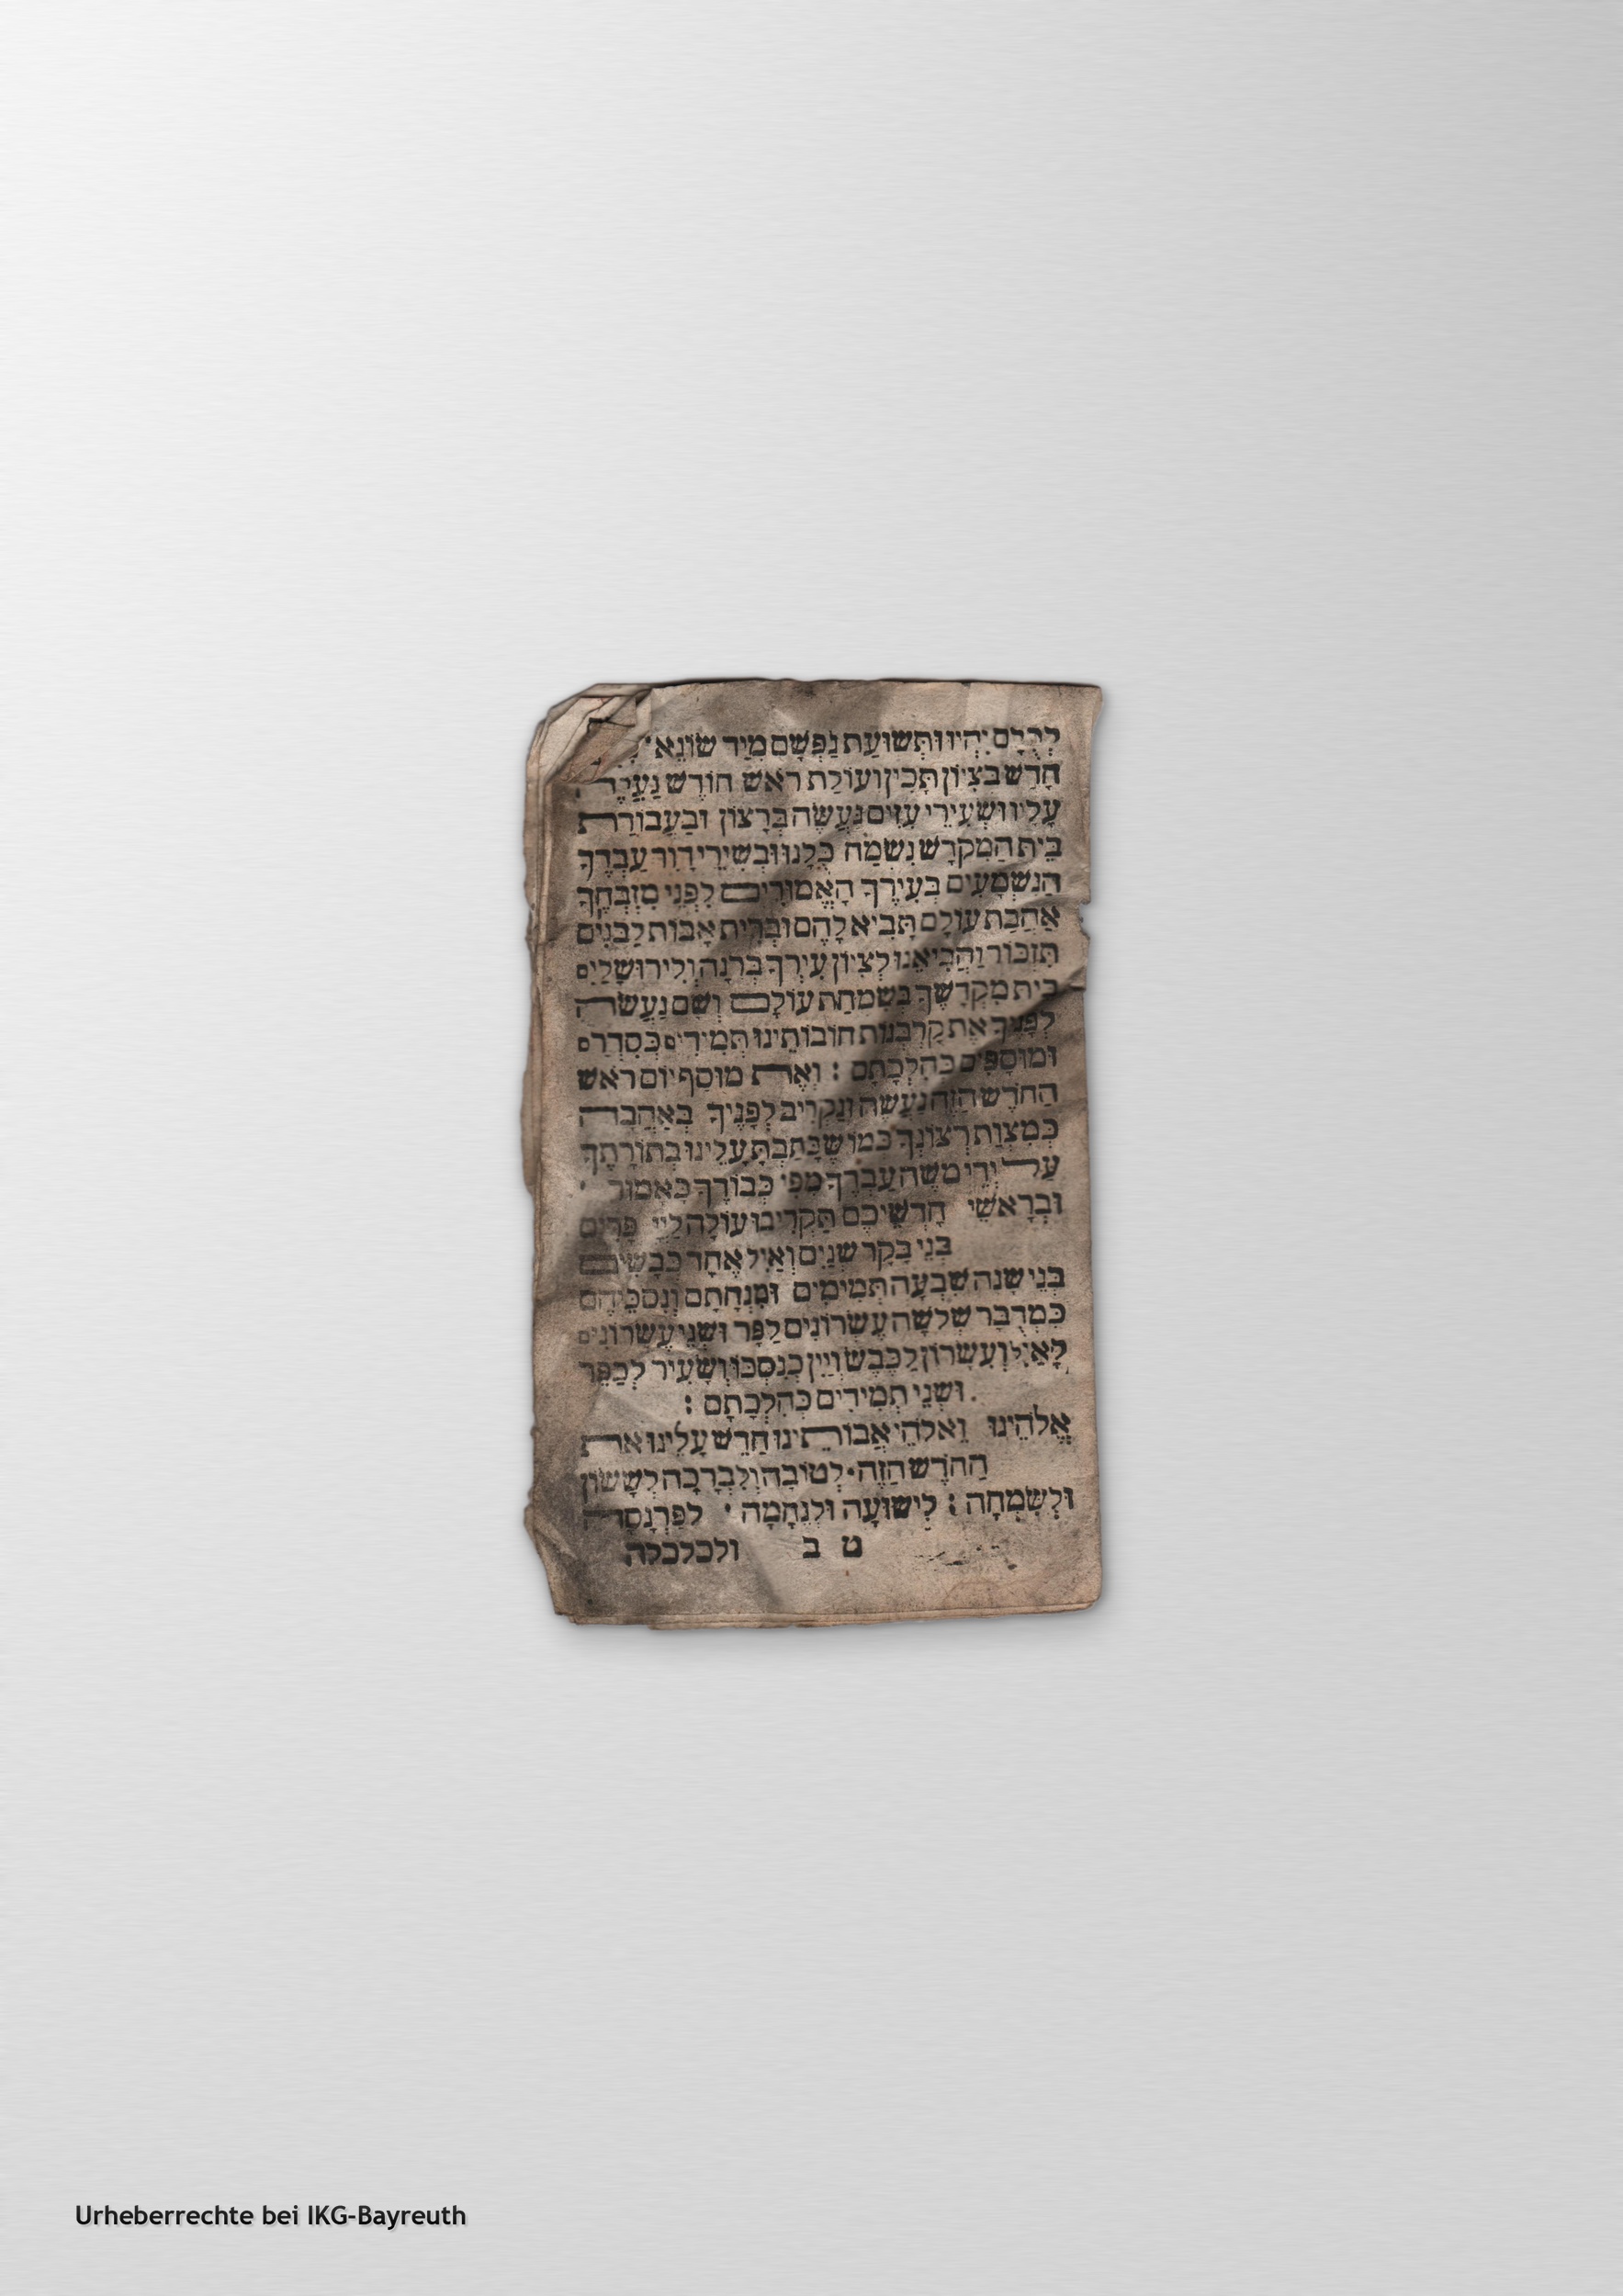 לְכֻלָּם יִהְיוּ וּתְשׁוּעַת נַפְשָׁם מִיַּד שׂוֹנֵא׳
חָדָשׁ בְּצִיּוֹן תָּכִין וְעוֹלַת רֹאשׁ חוֹדֶשׁ נַעֲרֹךְ
עָלָיו וּשְׂעִירֵי עִזִּים נַעֲשֶׂה בְּרָצוֹן וּבַעֲבוֹדַת
בֵּית הַמִּקְדָּשׁ נִשְׂמַח כֻּלָּנוּ וּבְשִׁירֵי דָוִד עַבְדֶּךָ
הַנִּשְׁמָעִים בְּעִירֶךָ הָאֲמוּרִים לִפְנֵי מִזְבְּחֶךָ
אַהֲבַת עוֹלָם תָּבִיא לָהֶם וּבְרִית אָבוֹת לַבָּנִים
תִּזְכּוֹר וַהֲבִיאֵנוּ לְצִיּוֹן עִירְךָ בְּרִנָּה וְלִירוּשָׁלַיִם
בֵּית מִקְדָּשְׁךָ בְּשִׂמְחַת עוֹלָם וְשָׁם נַעֲשֶׂה
לְפָנֶיךָ אֶת קָרְבְּנוֹת חוֹבוֹתֵינוּ תְּמִידִים כְּסִדְרָם
וּמוּסָפִים כְּהִלְכָתָם : וְאֶת מוּסַף יוֹם רֹאשׁ
הַחֹדֶשׁ הַזֶּה נַעֲשֶׂה וְנַקְרִיב לְפָנֶיךָ בְּאַהֲבָה
כְּמִצְוַת רְצוֹנֶךָ כְּמוֹ שֶׁכָּתַבְתָּ עָלֵינוּ בְּתוֹרָתֶךָ
עַל יְדֵי מֹשֶׁה עַבְדֶּךָ מִפִּי כְבוֹדֶךָ כָּאָמוּר ׳
וּבְרָאשֵׁי חָדְשֵׁיכֶם תַּקְרִיבוּ עוֹלָה לַיְיָ פָּרִים
בְּנֵי בָקָר שְׁנַיִם וְאַיִל אֶחָד כְּבָשִׂים
בְּנֵי שָׁנָה שִׁבְעָה תְּמִימִים וּמִנְחָתָם וְנִסְכֵּיהֶם
כִּמְדֻבָּר שְׁלֹשָׁה עֶשְׂרוֹנִים לַפָּר וּשְׁנֵי עֶשְׂרוֹנִים
לָאַיִל וְעִשָּׂרוֹן לַכֶּבֶשׂ וְיַיִן כְּנִסְכּוֹ וְשָׂעִיר לְכַפֵּר
וּשְׁנֵי תְמִידִים כְּהִלְכָתָם :
אֱלֹהֵינוּ וֵאלֹהֵי אֲבוֹתֵינוּ חַדֵּשׁ עָלֵינוּ אֶת
הַחֹדֶשׁ הַזֶּה· לְטוֹבָה וְלִבְרָכָה לְשָׂשׂוֹן
וּלְשִׂמְחָה : לִישׁוּעָה וּלְנֶחָמָה ׳ לְפַרְנָסָה
ט ב ולכלכלה
Urheberrechte bei IKG-Bayreuth